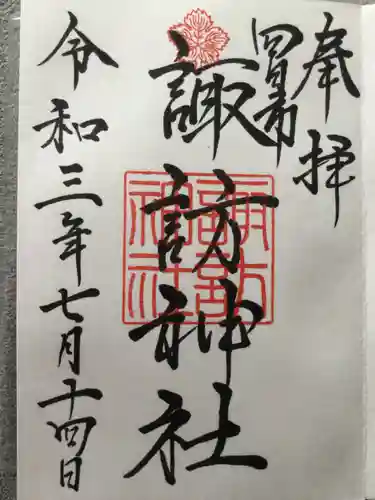 奉拝
四日市
諏訪神社
諏訪神社
令和三年七月十四日